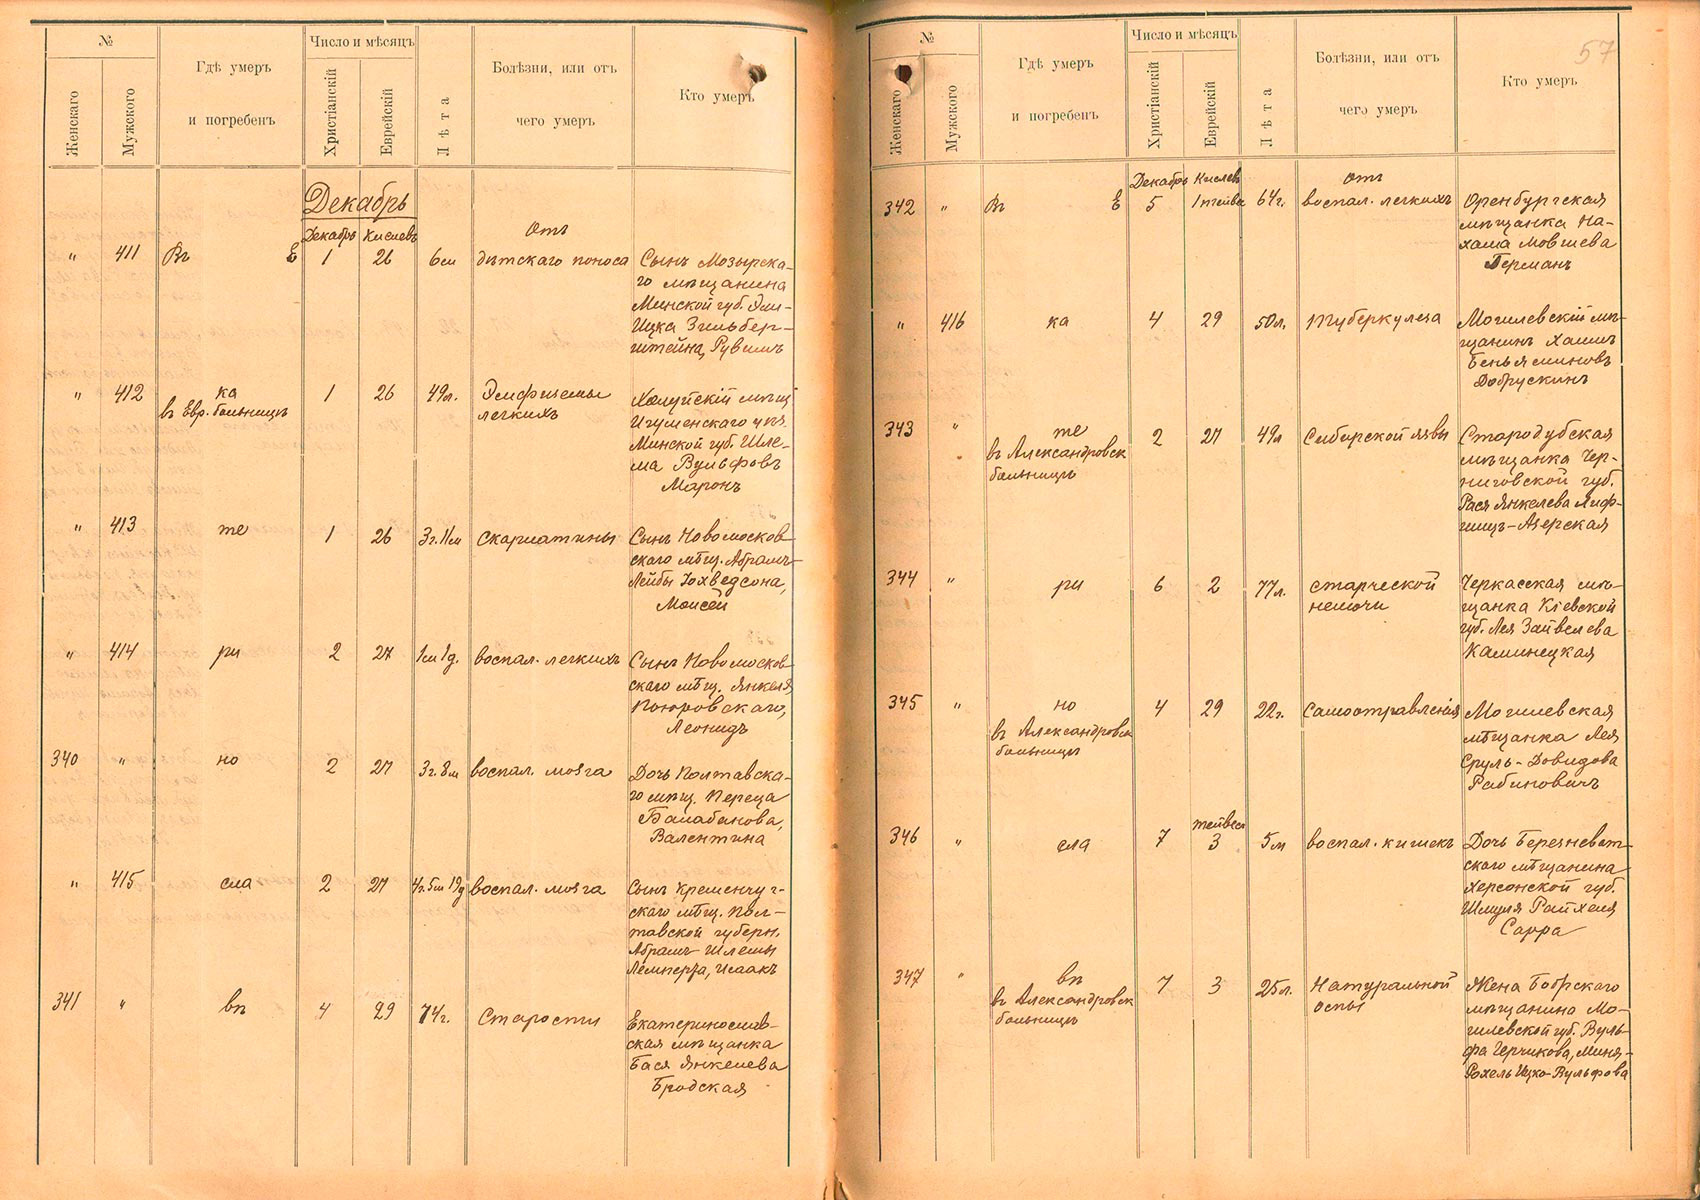 №
Женскаго
Мужского
Гдѣ умеръ
и погребенъ
Число и мѣсяцъ
Христіанскій
Еврейскій
Лѣта
Болѣзни, или отъ
чего умеръ
Кто умеръ
Декабрь
Декабрь Кислевъ
Отъ
" 411 Въ Е 1 26 6 м дѣтскаго поноса
Сынъ Мозырска-
го мѣщанина
Минской губ. Эли-
Ицка Зильбер-
штейна, Рувимъ
" 412 ка 1 26 49 л. Эмфиземы
въ Евр. больницѣ
легкихъ
Холуйскій мѣщ
Игуменскаго уѣз.
Минской губ. Шле-
ма Вульфовъ
Маронъ
" 413 те 1 26 3 г. 11 м скарлатины
Сынъ Новомосков
скаго мѣщ. Абрамъ-
Лейбы Іохведсона,
Моисей
" 414 ри 2 27 1 м 1 д. воспал. легкихъ
Сынъ Новомосков-
скаго мѣщ. Янкеля
Поюровскаго,
Леонидъ
340 " но 2 27 3 г. 8 м воспал. мозга
Дочь Полтавска-
го мѣщ. Переца
Балабанова,
Валентина
" 415 сла 2 27 4 г. 5 м 19 д воспал. мозга
Сынъ Кременчуг-
скаго мѣщ. Пол-
тавской губерн.
Абрамъ Шлемы
Лемперта, Исаакъ
341 " въ 4 29 74 г. Старости
Екатеринослав-
ская мѣщанка
Бася Янкелева
Бродская
57
№
Женскаго
Мужского
Гдѣ умеръ
и погребенъ
Число и мѣсяцъ
Христіанскій
Еврейскій
Лѣта
Болѣзни, или отъ
чего умеръ
Кто умеръ
Декабрь Кислевъ
отъ
342 " Въ Е 5 1 тейве 64 г. воспал. легкихъ
Оренбургская
мѣщанка На-
хама Мовшева
Герман
" 416 ка 4 29 50 л. Туберкулеза
Могилевскій мѣ-
щанинъ Хаимъ
Беньяминовъ
Добрускинъ
343 " те 2 27 49 л Сибирской язвы
въ Александровск
больницѣ
Стародубская
мѣщанка Чер-
ниговской губ.
Рася Янкелева Лиф-
шицъ-Азерская
344 " ри 6 2 77 л. старческой
немочи
Черкасская мѣ-
щанка Кіевской
губ. Лея Зайвелева
Каминецкая
345 " но 4 29 22 г. Самоотравленія
въ Александровск
больницѣ
Могилевская
мѣщанка Лея
Сруль-Довидова
Рабиновичъ
тейвесъ
346 " сла 7 3 5 м воспал. кишекъ
Дочь Березневат-
скаго мѣщанина
Херсонской губ.
Шмуля Райхеля
Сарра
347 " въ 7 3 25 л. Натуральной
въ Александровск
больницѣ
оспы
Жена Бобрскаго
мѣщанина Мо-
гилевской губ. Вуль-
фа Герчикова, Миня-
Рохель Ицко-Вульфова